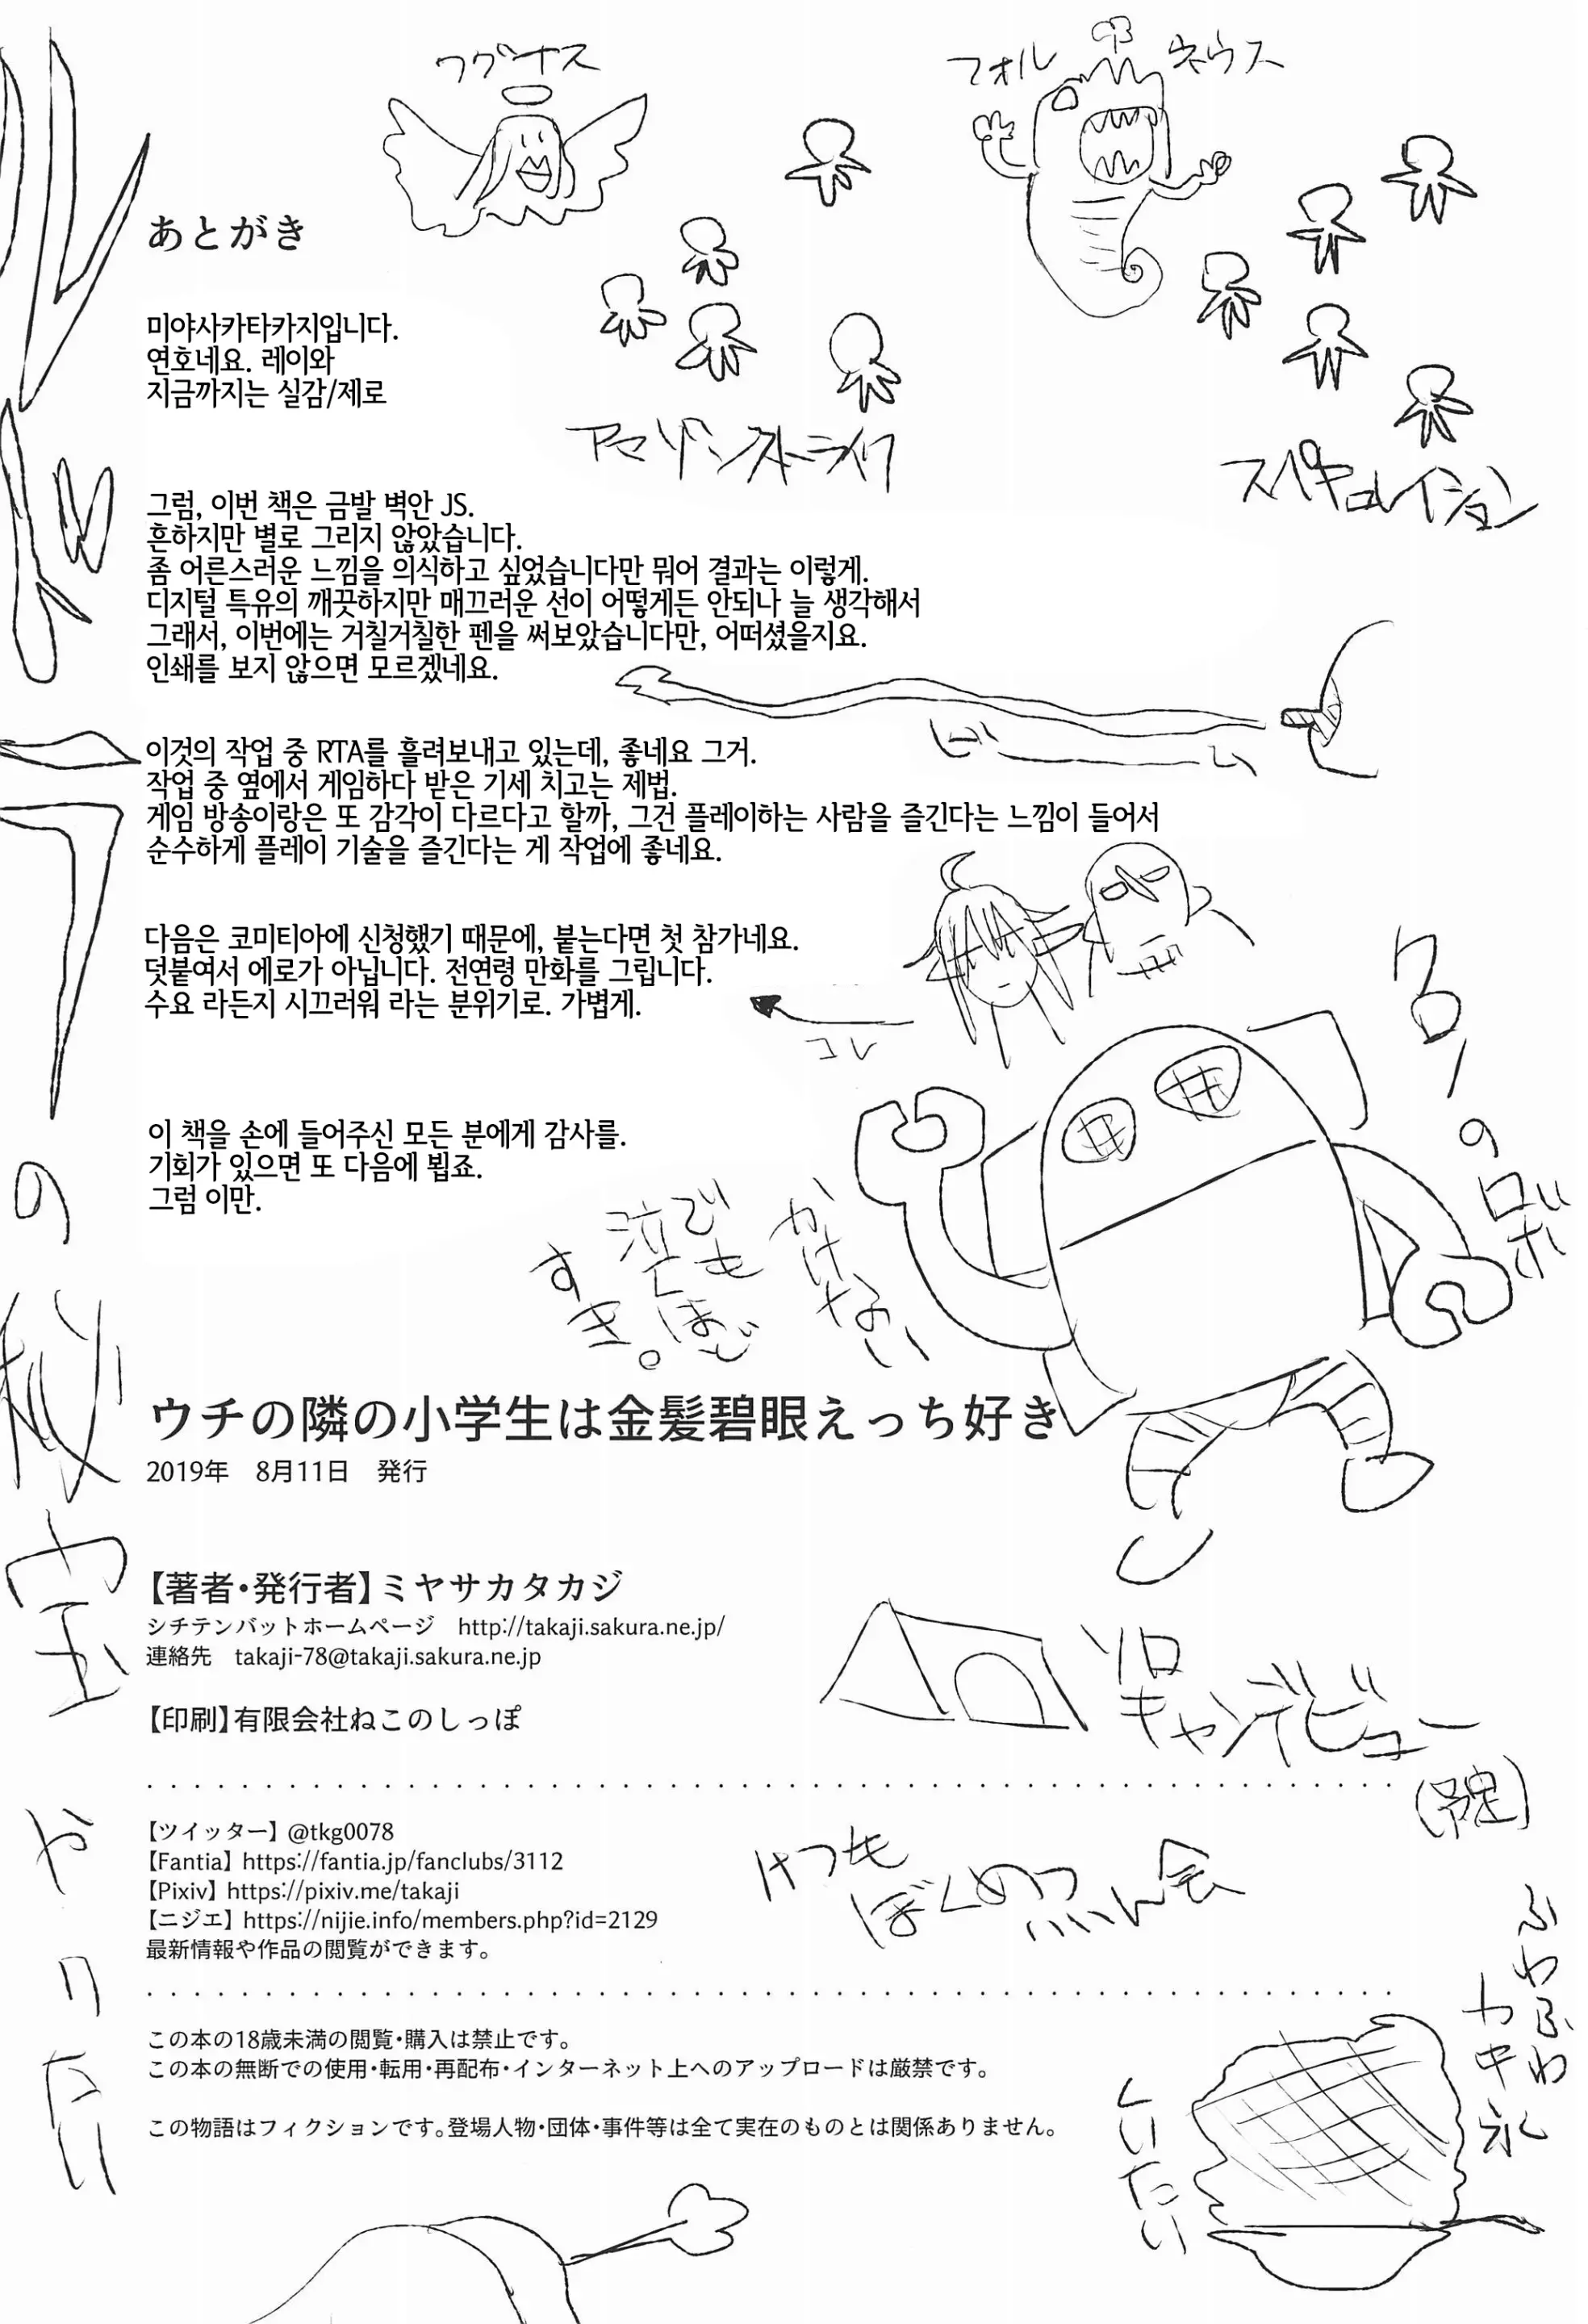 ワグナス
フォルネウス
あとがき
미야사카타카지입니다.
연호네요. 레이와
지금까지는 실감/제로
アマゾンストライク
スペキュレイション
그럼, 이번 책은 금발 벽안 JS.
흔하지만 별로 그리지 않았습니다.
좀 어른스러운 느낌을 의식하고 싶었습니다만 뭐어 결과는 이렇게.
디지털 특유의 깨끗하지만 매끄러운 선이 어떻게든 안되나 늘 생각해서
그래서, 이번에는 거칠거칠한 펜을 써보았습니다만, 어떠셨을지요.
인쇄를 보지 않으면 모르겠네요.
이것의 작업 중 RTA를 흘려보내고 있는데, 좋네요 그거.
작업 중 옆에서 게임하다 받은 기세 치고는 제법.
게임 방송이랑은 또 감각이 다르다고 할까, 그건 플레이하는 사람을 즐긴다는 느낌이 들어서
순수하게 플레이 기술을 즐긴다는 게 작업에 좋네요.
다음은 코미티아에 신청했기 때문에, 붙는다면 첫 참가네요.
덧붙여서 에로가 아닙니다. 전연령 만화를 그립니다.
수요 라든지 시끄러워 라는 분위기로. 가볍게.
コレ
이 책을 손에 들어주신 모든 분에게 감사를.
기회가 있으면 또 다음에 뵙죠.
그럼 이만.
かけない
でも
泣くほど
すき。
の秘宝
やりたい
ウチの隣の小学生は金髪碧眼えっち好き
2019年　8月11日　発行
【著者・発行者】ミヤサカタカジ
シチテンバットホームページ　http://takaji.sakura.ne.jp/
連絡先　takaji-78@takaji.sakura.ne.jp
【印刷】有限会社ねこのしっぽ
ソロ
キャンデビュー
(予定)
【ツイッター】@tkg0078
【Fantia】https://fantia.jp/fanclubs/3112
【Pixiv】https://pixiv.me/takaji
【ニジエ】https://nijie.info/members.php?id=2129
最新情報や作品の閲覧ができます。
この本の18歳未満の閲覧・購入は禁止です。
この本の無断での使用・転用・再配布・インターネット上へのアップロードは厳禁です。
この物語はフィクションです。登場人物・団体・事件等は全て実在のものとは関係ありません。
ふわふわ
カキ氷
くいたい